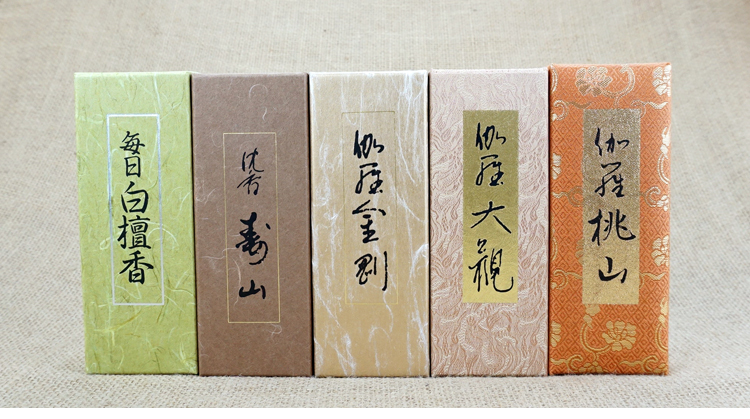 毎日白檀香
沈香寿山
伽羅金剛
伽羅大観
伽羅桃山